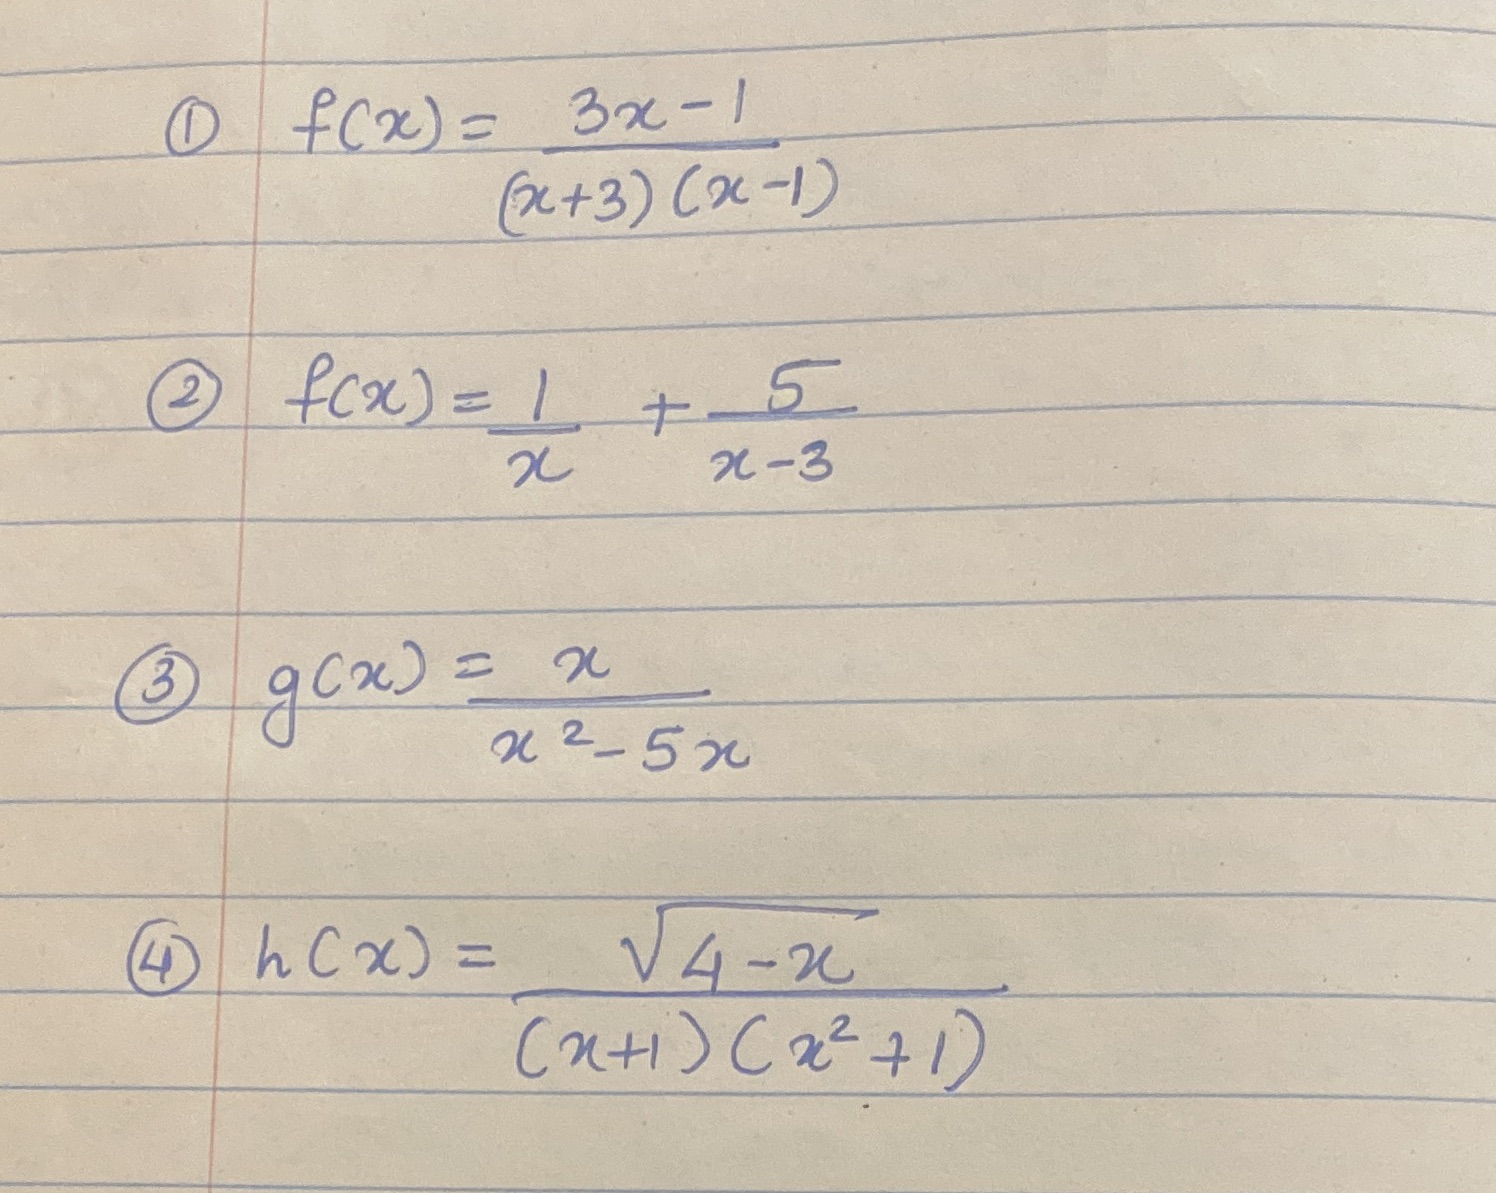 ① f(x) = \frac{3x-1}{(x+3)(x-1)}
② f(x) = \frac{1}{x} + \frac{5}{x-3}
③ g(x) = \frac{x}{x^2-5x}
④ h(x) = \frac{\sqrt{4-x}}{(x+1)(x^2+1)}